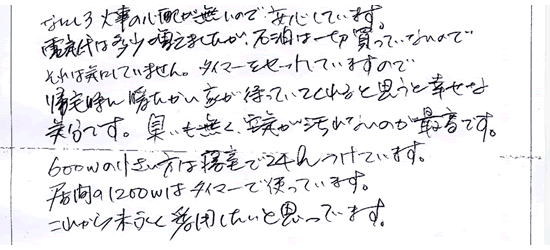 なにしろ火事の心配が無いので安心しています。
電気代は多少増えましたが、石油は一切買っていないので
それは気にしていません。タイマーをセットしていますので
帰宅時に暖たかい家が待っていてくれると思うと幸せな
気分です。臭いも無く、空気が汚れないのが最高です。
600Wの小さい方は寝室で24hつけています。
居間の1200Wはタイマーで使っています。
これから末永く愛用したいと思っています。